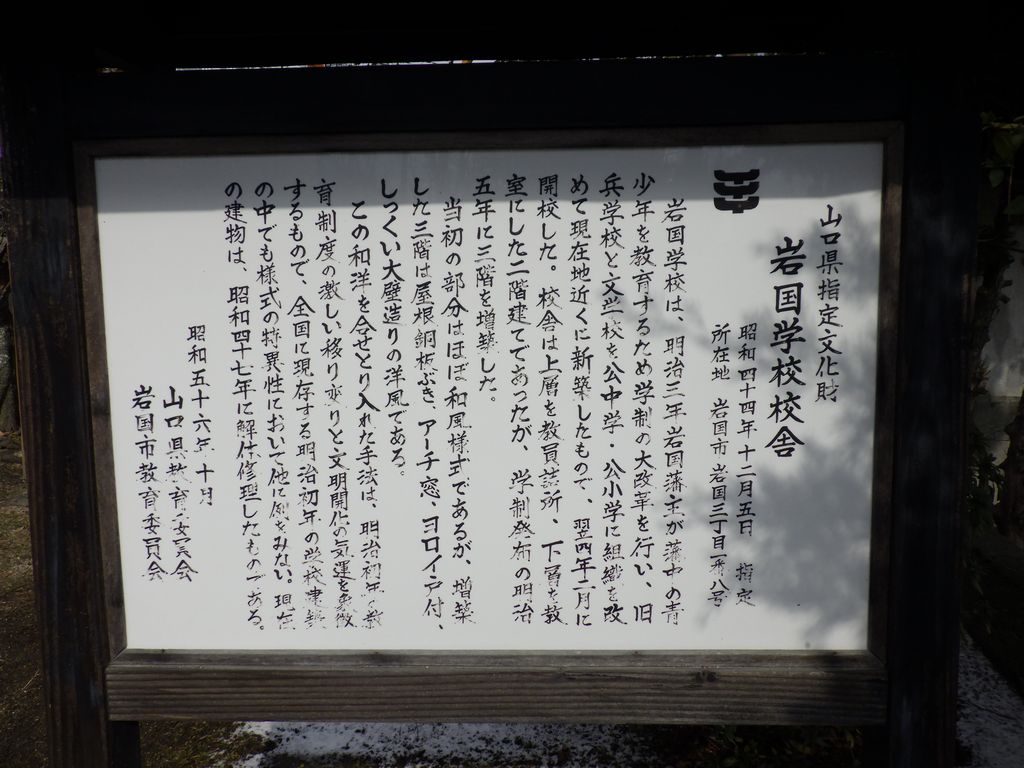 山口県指定文化財
岩国学校校舎
昭和四十四年十二月五日 指定
所在地 岩国市岩国三丁目一番八号
岩国学校は、明治三年岩国藩主が藩中の青
少年を教育するため学制の大改革を行い、旧
兵学校と文学校を公中学・公小学に組織を改
めて現在地近くに新築したもので、翌四年二月に
開校した。校舎は上層を教員詰所、下層を教
室にした二階建てであったが、学制発布の明治
五年に三階を増築した。
当初の部分はほぼ和風様式であるが、増築
した三階は屋根銅板ぶき、アーチ窓、ヨロイ戸付、
しっくい大壁造りの洋風である。
この和洋を合せとり入れた手法は、明治初年の教
育制度の激しい移り変りと文明開化の気運を象徴
するもので、全国に現存する明治初年の学校建築
の中でも様式の特異性において他に例をみない。現在
の建物は、昭和四十七年に解体修理したものである。
昭和五十六年十月
山口県教育委員会
岩国市教育委員会